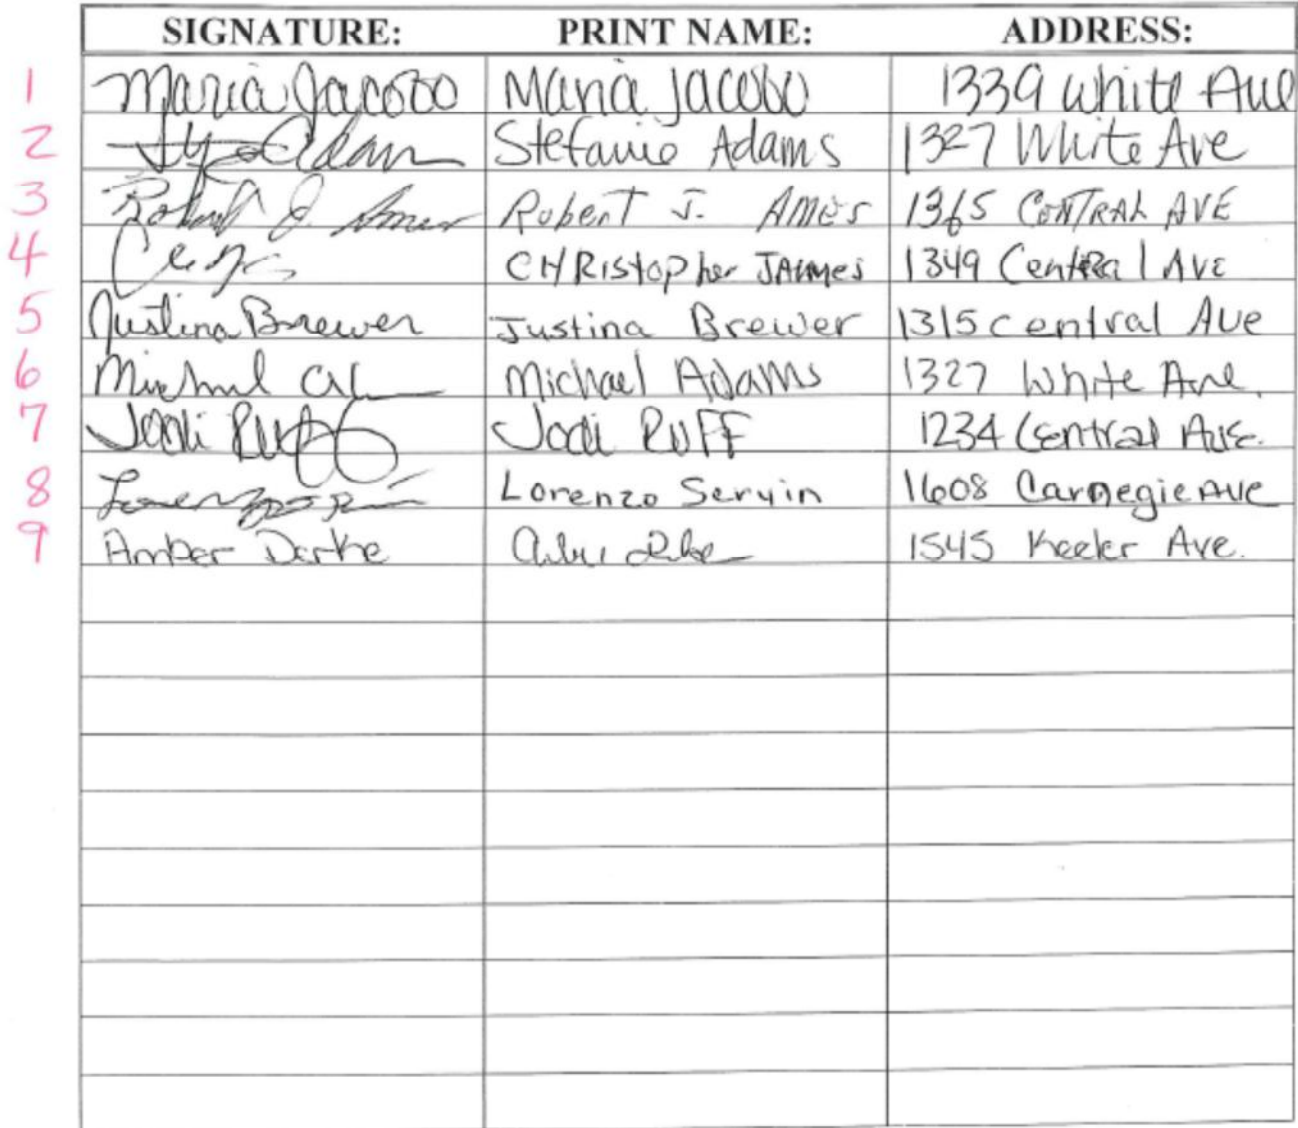 SIGNATURE: PRINT NAME: ADDRESS:
1 Maria Jacobo Maria Jacobo 1339 White Ave
2 Adam Stefanie Adams 1327 White Ave
3 Robert J. Ames Robert J. AMES 1365 CENTRAL AVE
4 CHRistopher JAymes 1349 CentRal AVE
5 Justina Brewer Justina Brewer 1315 central Ave
6 Michael Michael Adams 1327 White Ave.
7 Jodi Ruff Jodi RUFF 1234 Central Ave.
8 Lorenzo Servin 1608 Carnegie Ave
9 Amber Darke 1545 Keeler Ave.